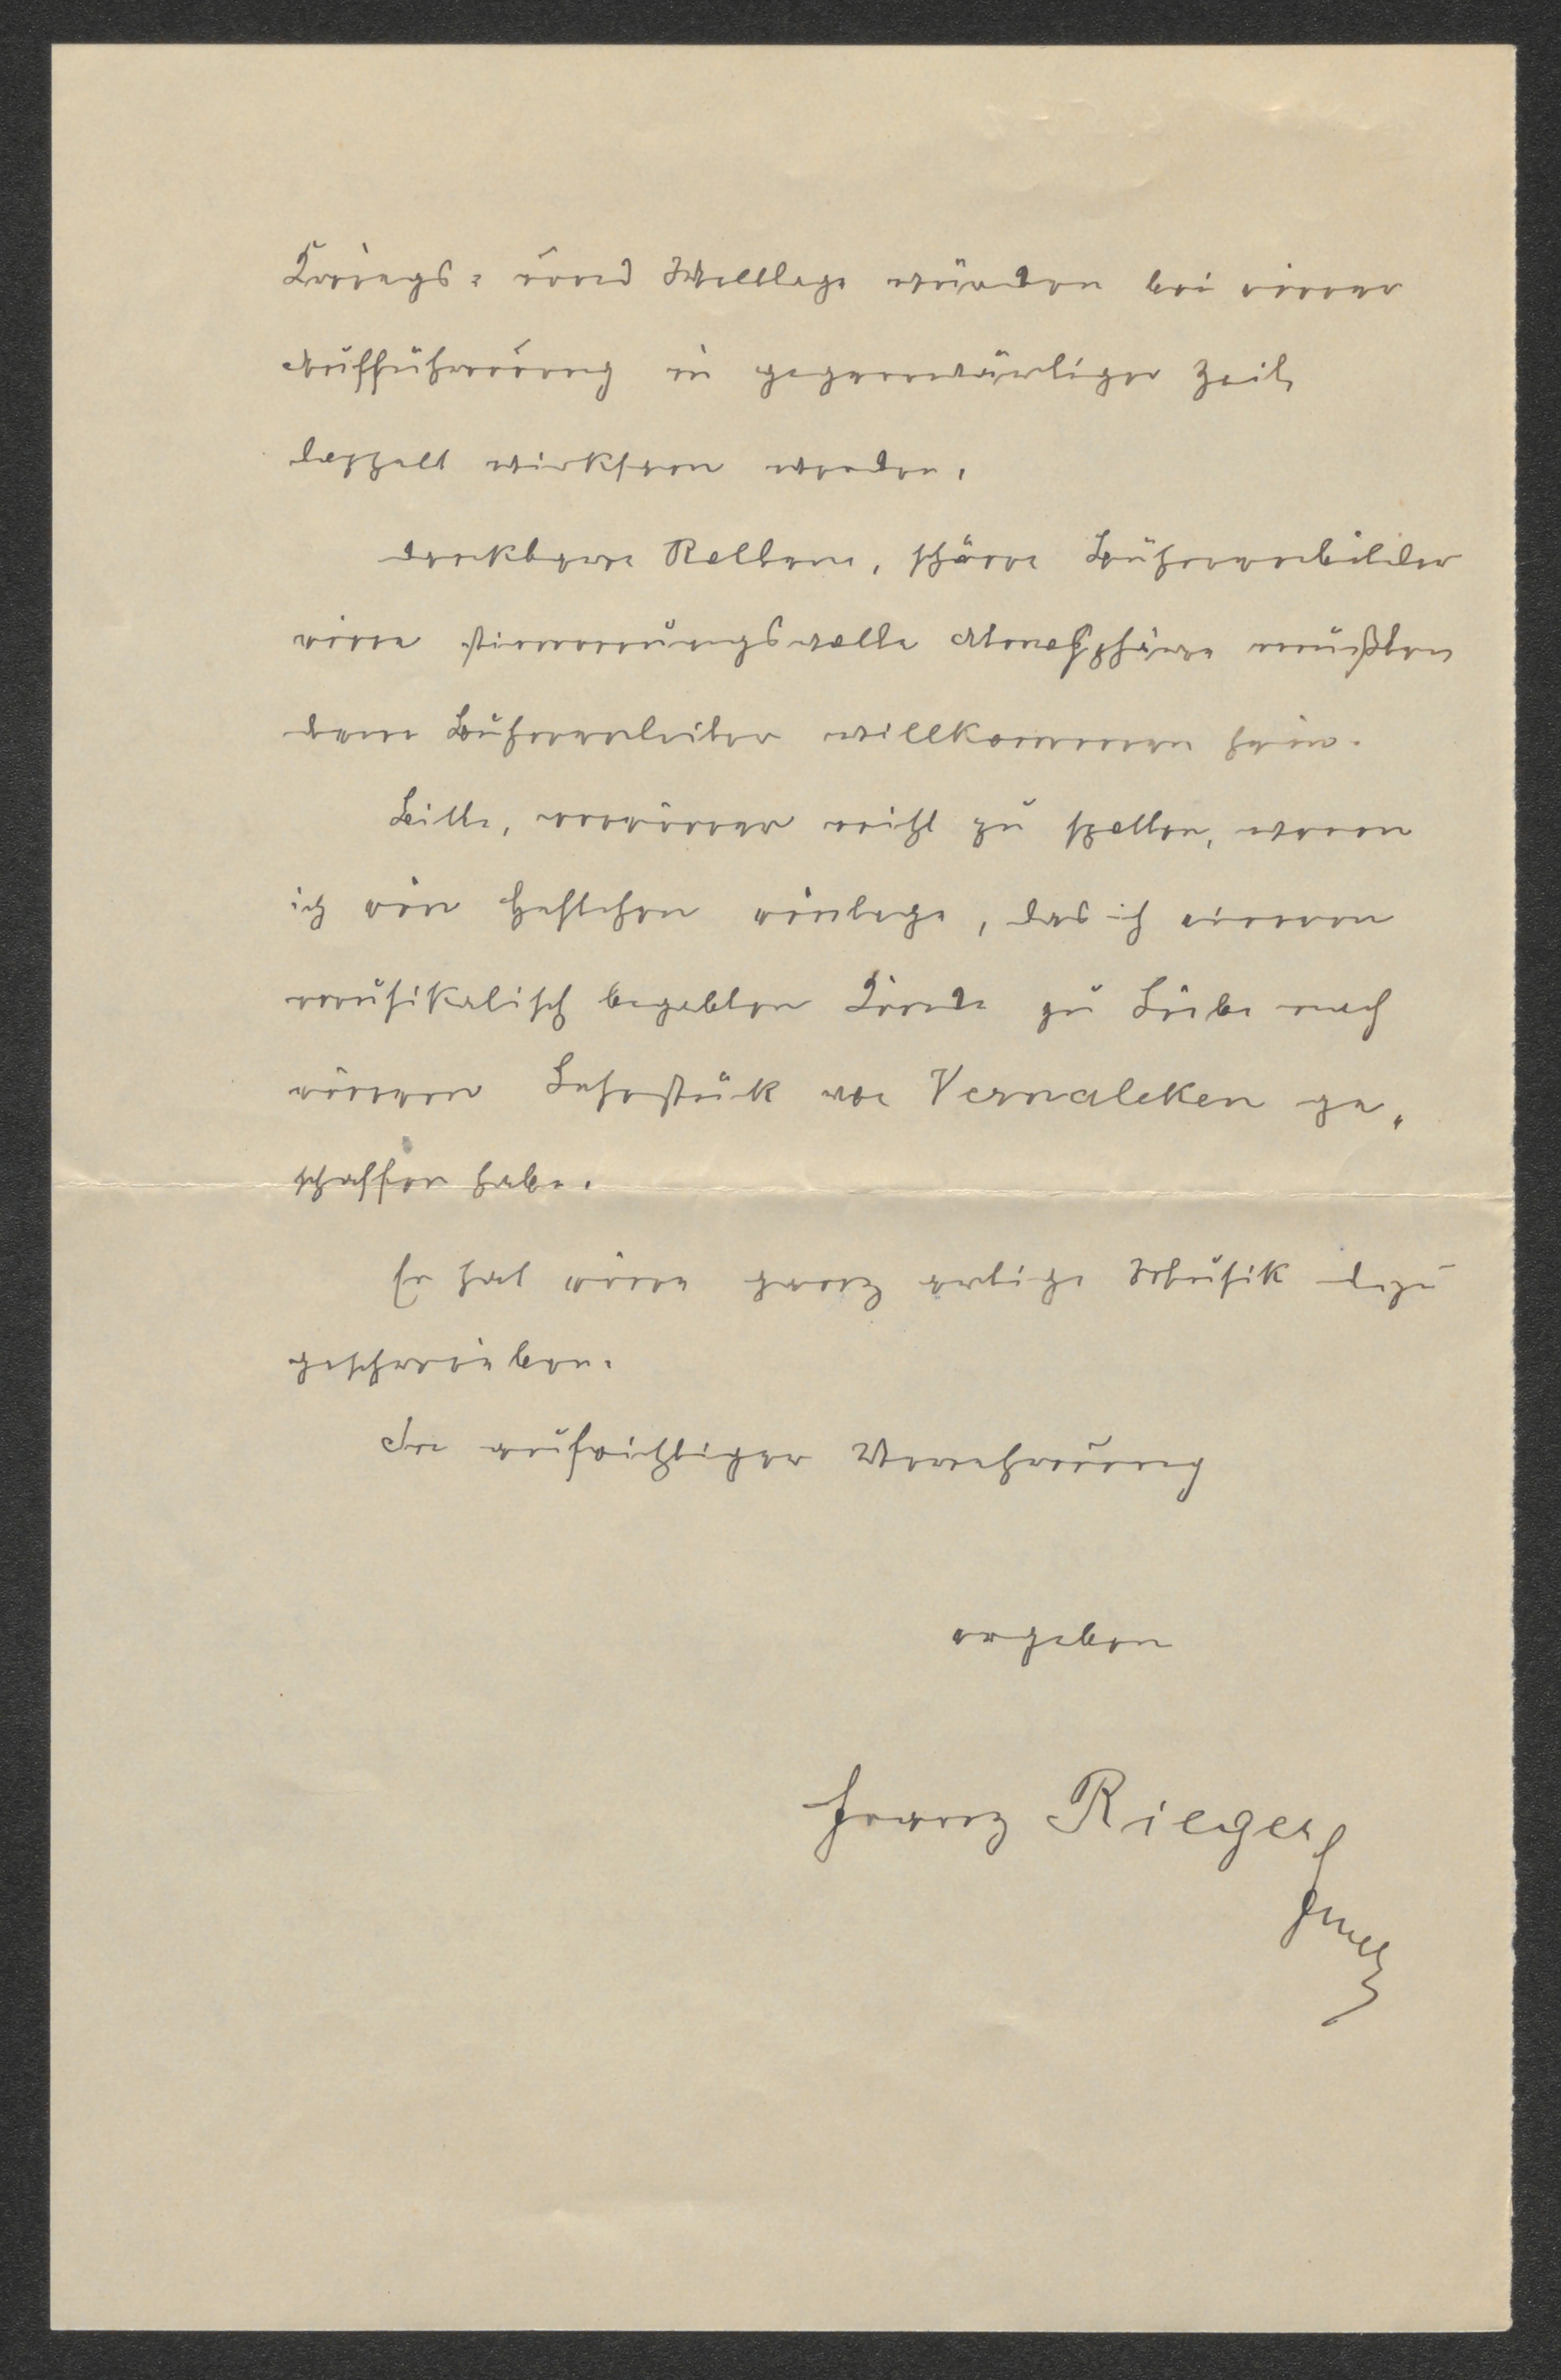 Kriegs- und Weltlage würden bei einer
Aufführung in gegenwärtiger Zeit
doppelt wirksam werden.
Dankbare Rollen, schöne Bühnenbilder
eine stimmungsvolle Atmosphäre müßten
dem Bühnenleiter willkommen sein.
Bitte, meiner nicht zu spotten, wenn
ich ein Heftchen einlege, das ich einem
musikalisch begabten Kinde zu Liebe nach
einem Lehrstück von Vernaleken ge„
schaffen habe.
Er hat eine ganz artige Musik dazu
geschrieben.
In aufrichtiger Verehrung
ergeben
Franz Rieger